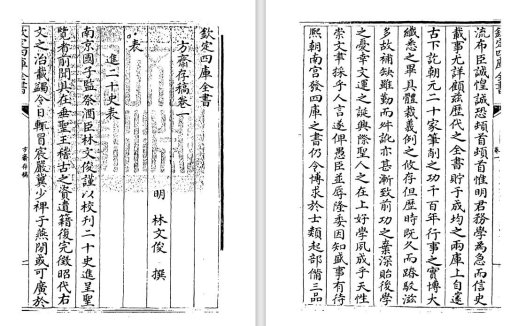 欽定四庫全書
方齋存稿卷一
明 林文俊 撰
表
進二十史表
南京國子監祭酒臣林文俊謹以校刋二十史進呈聖
覽者前聞具在垂聖王稽古之資遺籍復完儆昭代右
文之治載躅今日輒冒宸嚴冀少裨于燕閒或可廣於
欽定四庫全書
方齋存稿
欽定四庫全書
卷一
流布臣誠惶誠恐頓首頓首惟明君務學為急而信史
載事尤詳顧茲歷代之全書貯于成均之兩庫上自邃
古下訖朝元二十家筆削之功千百年行事之實博大
纖悉之畢具體裁義例之攸存但歷時既久而踳駁滋
多故補缺雖勤而舛訛亦甚漸致前功之棄深貽後學
之憂幸文運之誕興際聖人之在上好學夙成乎天性
崇文事採乎人言遂俾愚臣並辱隆委因知盛事有待
熙朝南宫發四庫之書仍令博求於士類起部備三品